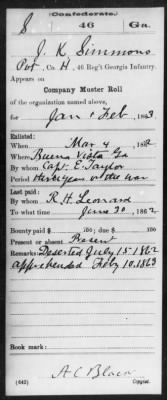 Confederate.
S 46 Ga.
J. K. Simmons
Pvt, Co. H, 46 Reg't Georgia Infantry.
Appears on
Company Muster Roll
of the organization named above,
for Jan & Feb, 1863
Enlisted:
When Mar 4, 1862
Where Buena Vista Ga
By whom Capt. E. Taylor
Period three years or the war
Last paid:
By whom R. H. Leonard
To what time June 30, 1862
Bounty paid $ 100; due $ 100
Present or absent Present
Remarks: Deserted July 15 1862
apprehended Feby 10. 1863
Book mark:
(642) Copyist.